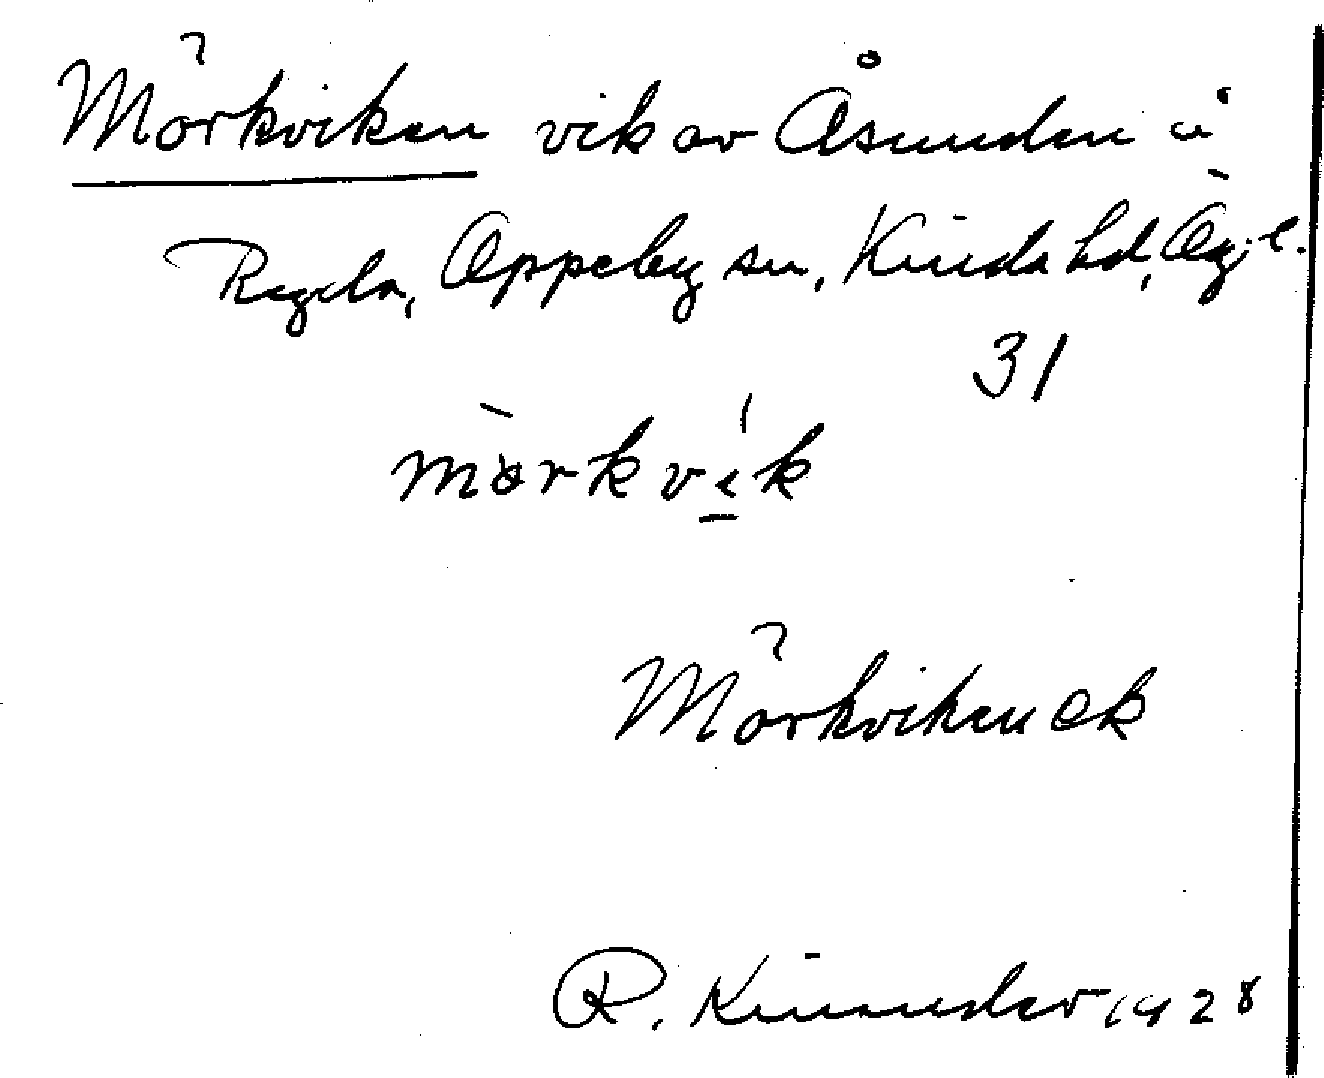 Mörkviken vik av Åsunden i
Oppeby sn, Kinda hd, Ög. l.
31
mörkvik
Mörkviken ek
R. Kinander 1928